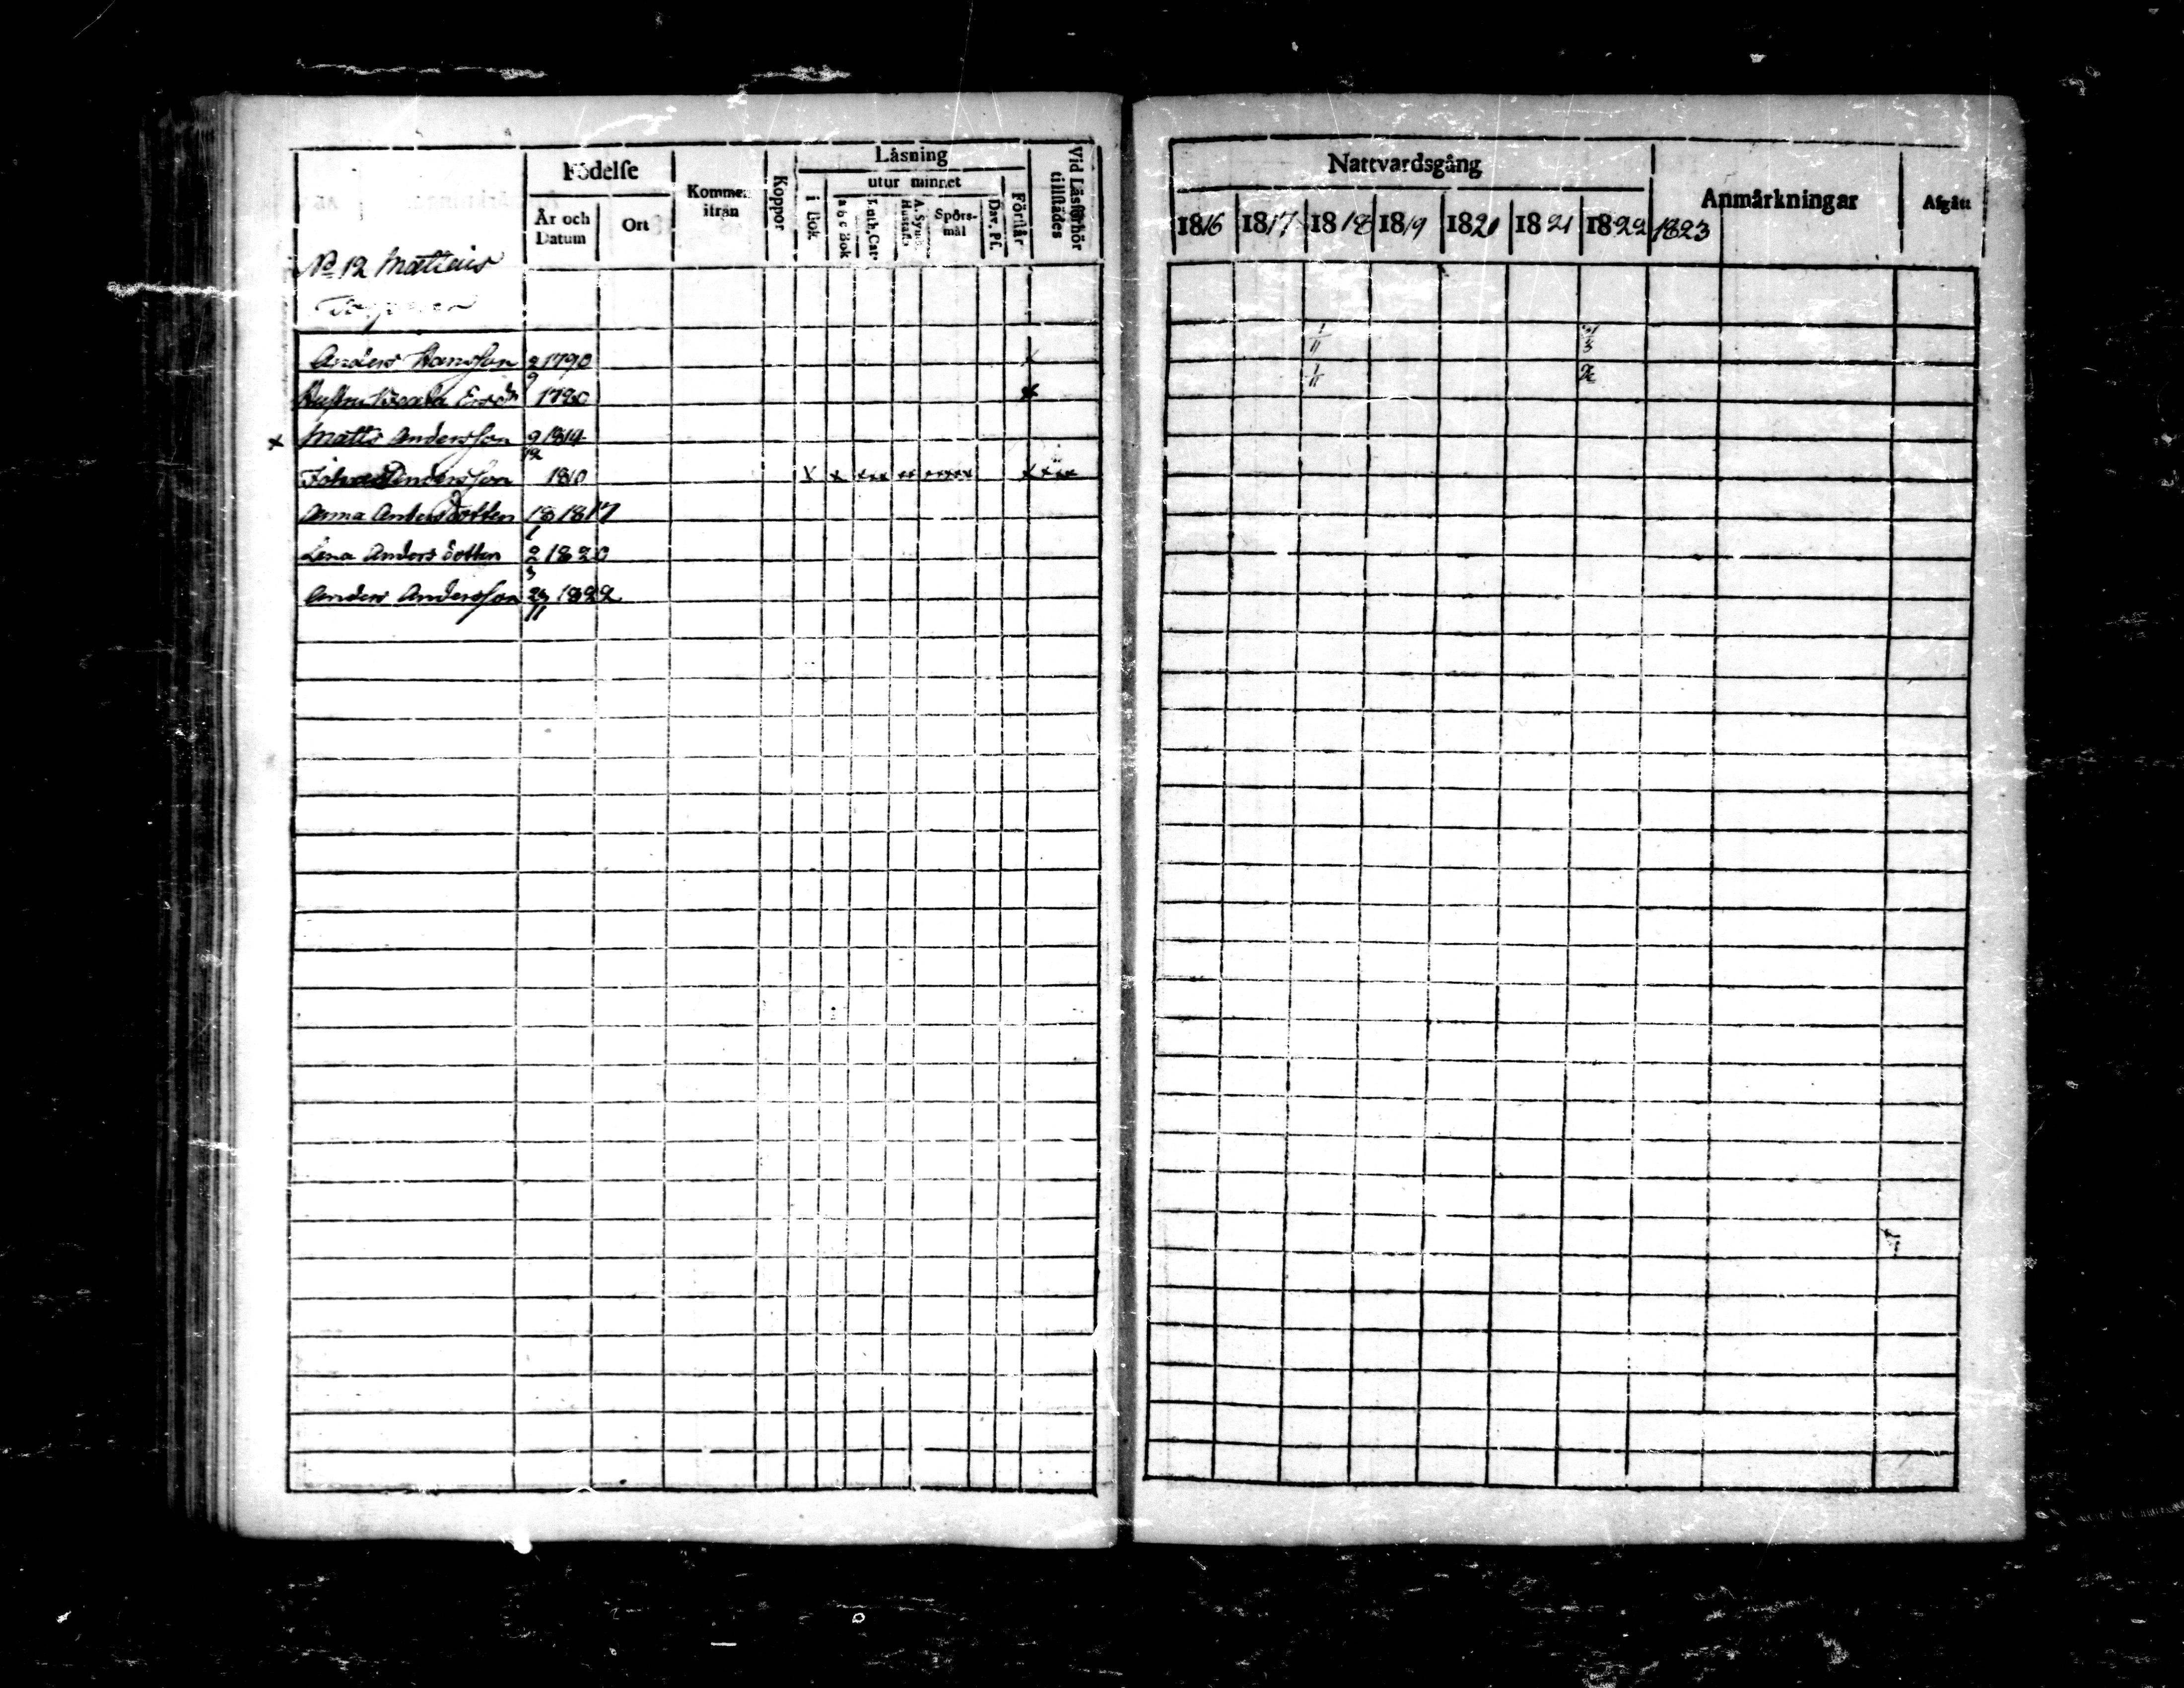 Födelse
Kommen ifrån
Koppor
Läsning
Vid Läsförhör tillstädes
År och Datum
Ort
i Bok
utur minnet
Förstår
a b c Bok
Luth. Cat.
A. Symb. Hustafl.
Spörs-mål
Dav. Ps.
No 12 Mattius
Anders Hansson 2/9 1790
Hustru Ersd 1790
x Matts Andersson 9/12 1814
Johan Andersson 1810 x x xxx xx xxxxx x xxx
Anna Andersdotter 18/1 1817
Lena Anders dotter 2/3 1820
Anders Andersson 23/11 1822
Nattvardsgång
Anmärkningar
Afgått
1816 1817 1818 1819 1820 1821 1822 1823
1/11
1/11